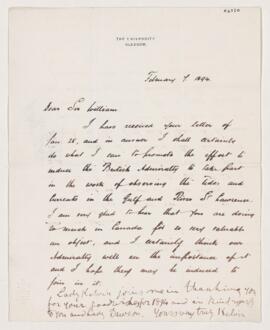 THE UNIVERSITY
GLASGOW.
February 7. 1894.
Dear Sir William
I have received your letter of
Jan 25, and in answer I shall certainly
do what I can to promote the effort to
induce the British Admiralty to take part
in the work of observing the tides and
currents in the Gulf and River St Lawrence.
I am very glad to hear that you are doing
so much in Canada for so very valuable
an object, and I certainly think our
Admiralty well on the importance of it
and I hope they may be induced to
join in it.
Lady Kelvin joins me in thanking you
for your good wishes for 1894 and in kind regards
to you and Lady Dawson. Yours very truly Kelvin